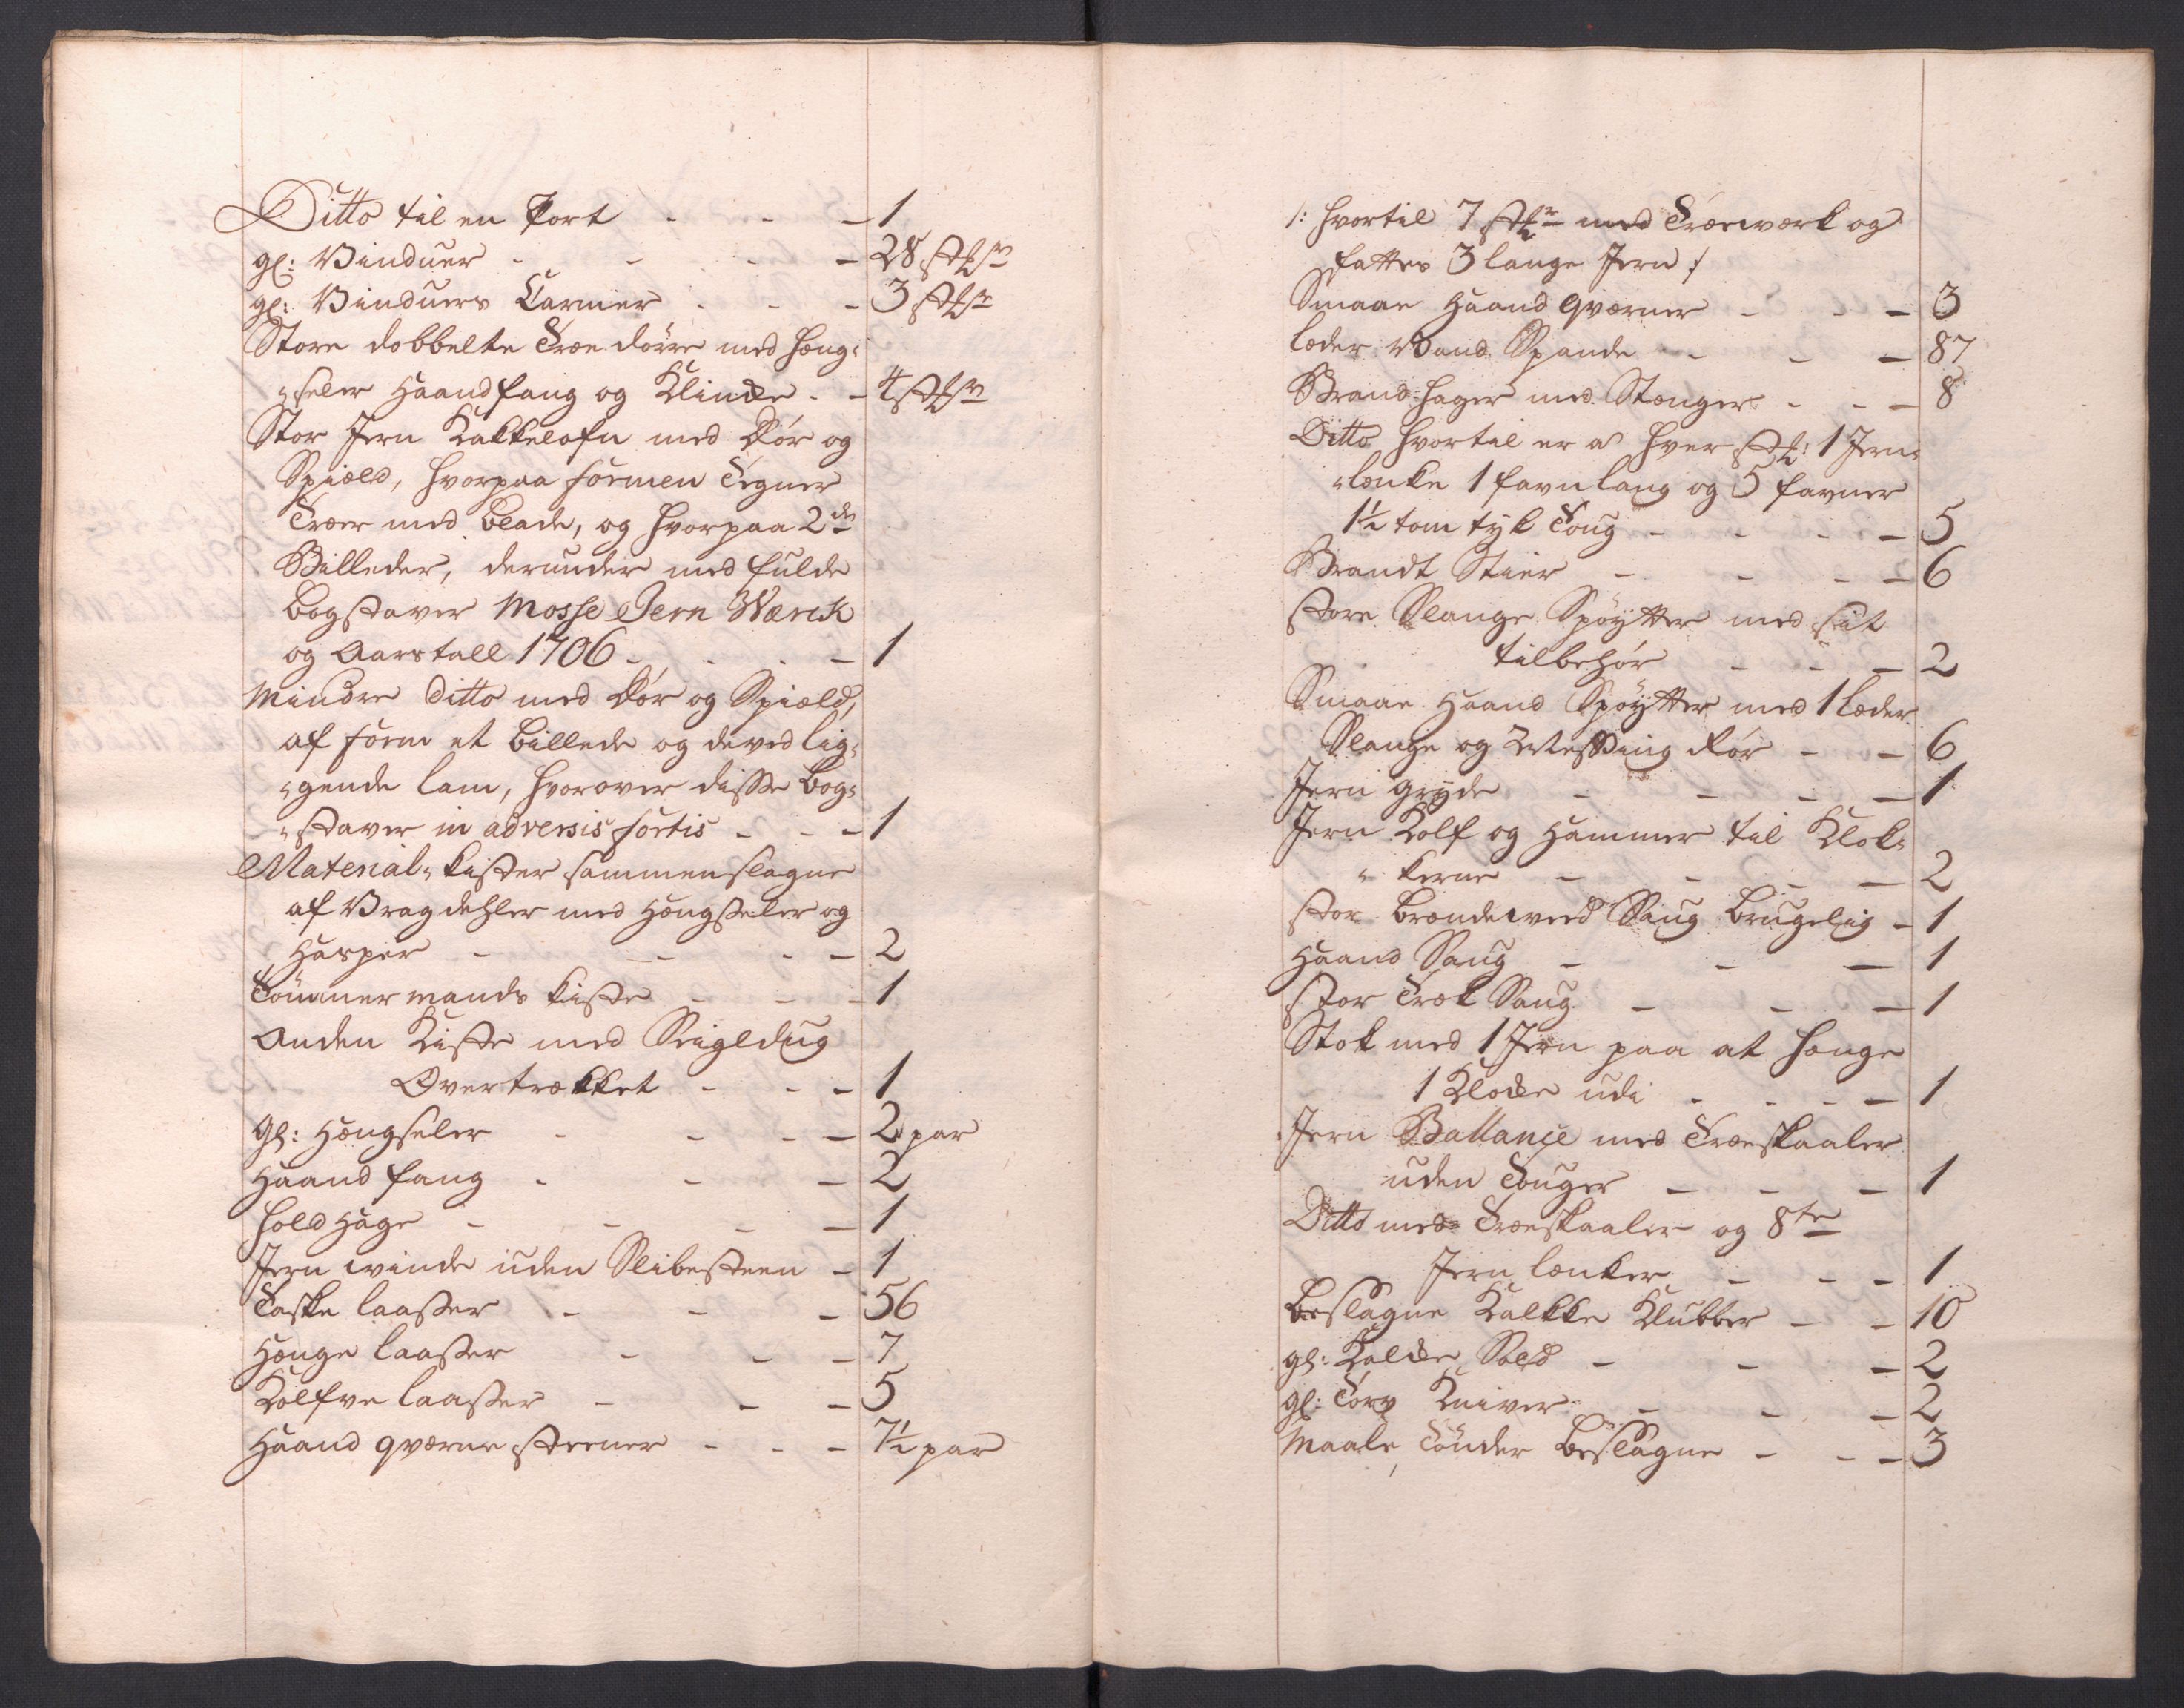 Ditto til en Port - - - 1
gl: Vinduer - - - - 28 stkr
gl: Vinduers Carmer - - - 3 stkr
Store dobbelte Træe dörre med Hæng-
seler Haandfang og Klinke - - 4 stkr
Stor Jern Kakkelofn med Rör og
Spiæld, hvorpaa formen Tegner
Træer med blade, og hvorpaa 2de
Billeder, derunder med fulde
bogstaver Mosse Jern Værck
og Aarstall 1706 - - - - 1
Mindre ditto med Rör og Spiæld,
af form et billede og deved lig-
gende lam, hvorover disse bog-
staver in adversis fortis - - - 1
Material- kister sammenslagne
af Vragdehler med Hængseler og
Hasper - - - - 2
Tömmermands kiste - - - 1
Anden Kiste med Seigldug
Overtrækket - - - 1
Gl: Hængseler - - - - 2 par
Haand fang - - - 2
hold Hage - - - - 1
Jern winde uden Slibesteen - 1
Taske laaser - - - 56
Hænge laaser - - - 7
Kolfve laaser - - - 5
Haand qværne steener - - - 7½ par
/: hvortil 7 stkr med Træeværk og
fattes 3 lange Jern :/
Smaae Haand qværner - - - 3
læder Vand Spande - - - 87
Brand-hager med Stænger - - - 8
Ditto hvortil er a hver stk: 1 Jern-
lænke 1 favn lang og 5 favner
1½ tom tyk Toug - - - - 5
Brandt Stier - - - - 6
store Slange Spöytter med sit
tilbehör - - - 2
Smaae Haand Spöytter med 1 læder
Slange og Messing Rör - - 6
Jern gryde - - - - 1
Jern Kolf og Hammer til Klok-
kerne - - - - 2
stor brændeveed Saug brugelig - 1
Haand Saug - - - 1
stor Træk Saug - - - 1
Stok med 1 Jern paa at hænge
1 Klocke udi - - - - 1
Jern Ballance med Træeskaaler
uden Touger - - - 1
Ditto med Træeskaaler og 8te
Jern lænker - - - 1
beslagne Kalkke Klubber - - 10
gl: Kalcke Sold - - - 2
gl: Törv Kniver - - - 2
Maale Tönder beslagne - - - 3